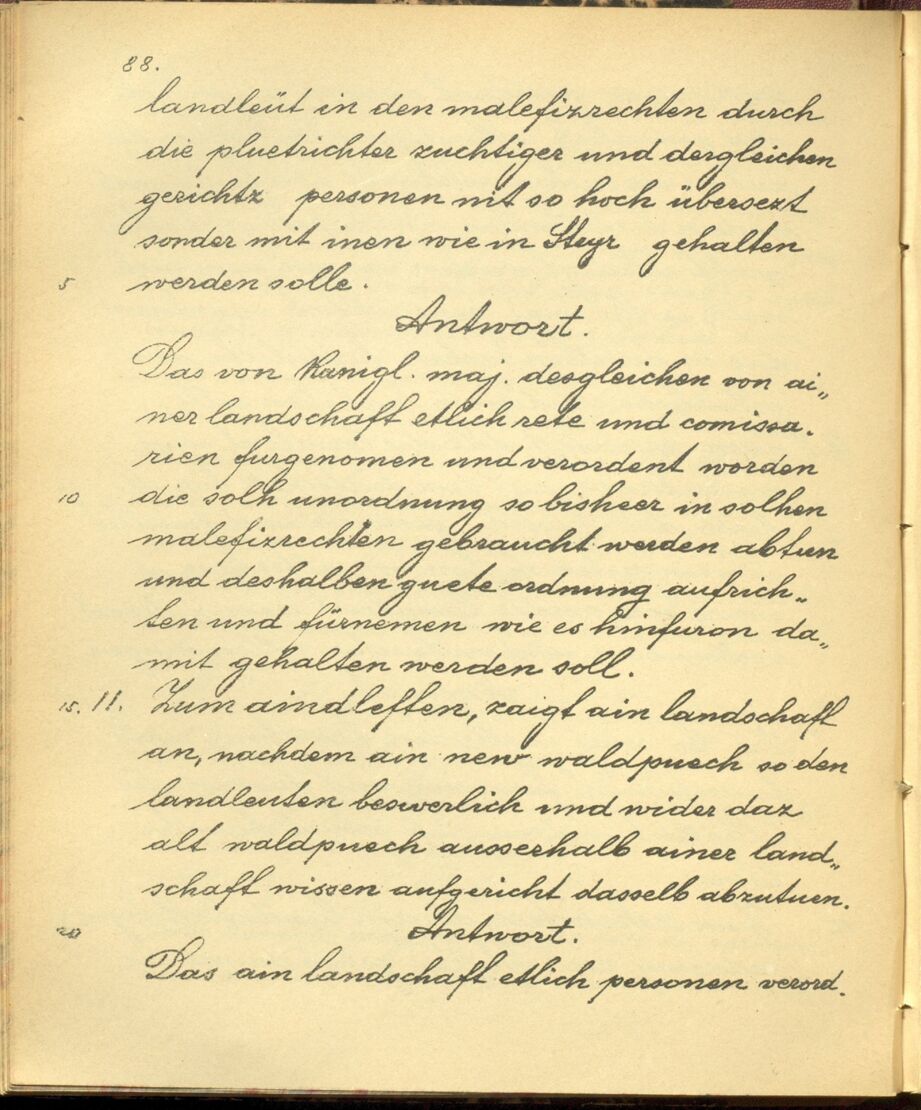 88.
landleüt in den malefizrechten durch
die pluetrichter zuchtiger und dergleichen
gerichtz personen nit so hoch übersezt
sonder mit inen wie in Steyr gehalten
5 werden solle.
Antwort.
Das von Kanigl. maj. desgleichen von ai„
ner landschaft etlich rete und comissa.
rien furgenomen und verordent worden
10 die solh unordnung so bisheer in solhen
malefizrechten gebraucht werden abtun
und deshalben guete ordnung aufrich„
ten und fürnemen wie es hinfuron da„
mit gehalten werden soll.
15. 11. Zum aindleften, zaigt ain landschaft
an, nachdem ain new waldpuech so den
landleuten beswerlich und wider daz
alt waldpuech ausserhalb ainer land„
schaft wissen aufgericht dasselb abzutuen.
20 Antwort.
Das ain landschaft etlich personen verord.